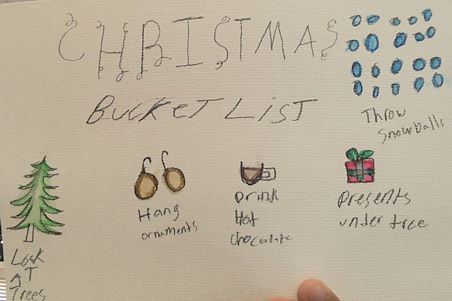 CHRISTMAS
BUCKET LIST
Throw
snowballs
Look
AT
Trees
Hang
ornaments
Drink
Hot
chocolate
Presents
under tree